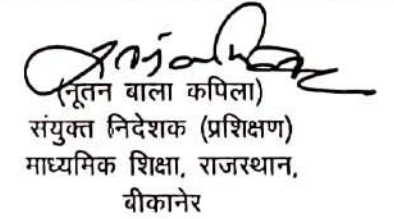 (नूतन बाला कपिला)
संयुक्त निदेशक (प्रशिक्षण)
माध्यमिक शिक्षा, राजस्थान,
बीकानेर